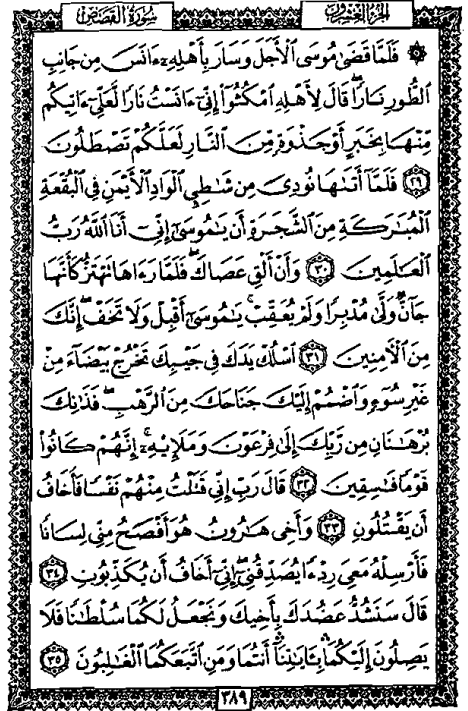 سُورَةُ القَصَصِ الجزء العشرون
۞ فَلَمَّا قَضَىٰ مُوسَى ٱلْأَجَلَ وَسَارَ بِأَهْلِهِۦٓ ءَانَسَ مِن جَانِبِ
ٱلطُّورِ نَارًاۖ قَالَ لِأَهْلِهِ ٱمْكُثُوٓا۟ إِنِّىٓ ءَانَسْتُ نَارًا لَّعَلِّىٓ ءَاتِيكُم
مِّنْهَا بِخَبَرٍ أَوْ جَذْوَةٍ مِّنَ ٱلنَّارِ لَعَلَّكُمْ تَصْطَلُونَ
٢٩ فَلَمَّآ أَتَىٰهَا نُودِىَ مِن شَٰطِئِ ٱلْوَادِ ٱلْأَيْمَنِ فِى ٱلْبُقْعَةِ
ٱلْمُبَٰرَكَةِ مِنَ ٱلشَّجَرَةِ أَن يَٰمُوسَىٰٓ إِنِّىٓ أَنَا ٱللَّهُ رَبُّ
ٱلْعَٰلَمِينَ ٣٠ وَأَنْ أَلْقِ عَصَاكَۖ فَلَمَّا رَءَاهَا تَهْتَزُّ كَأَنَّهَا
جَآنٌّ وَلَّىٰ مُدْبِرًا وَلَمْ يُعَقِّبْۚ يَٰمُوسَىٰٓ أَقْبِلْ وَلَا تَخَفْۖ إِنَّكَ
مِنَ ٱلْءَامِنِينَ ٣١ ٱسْلُكْ يَدَكَ فِى جَيْبِكَ تَخْرُجْ بَيْضَآءَ مِنْ
غَيْرِ سُوٓءٍ وَٱضْمُمْ إِلَيْكَ جَنَاحَكَ مِنَ ٱلرَّهْبِۖ فَذَٰنِكَ
بُرْهَٰنَانِ مِن رَّبِّكَ إِلَىٰ فِرْعَوْنَ وَمَلَإِي۟هِۦٓۚ إِنَّهُمْ كَانُوا۟
قَوْمًا فَٰسِقِينَ ٣٢ قَالَ رَبِّ إِنِّى قَتَلْتُ مِنْهُمْ نَفْسًا فَأَخَافُ
أَن يَقْتُلُونِ ٣٣ وَأَخِى هَٰرُونُ هُوَ أَفْصَحُ مِنِّى لِسَانًا
فَأَرْسِلْهُ مَعِىَ رِدْءًا يُصَدِّقُنِىٓۖ إِنِّىٓ أَخَافُ أَن يُكَذِّبُونِ ٣٤
قَالَ سَنَشُدُّ عَضُدَكَ بِأَخِيكَ وَنَجْعَلُ لَكُمَا سُلْطَٰنًا فَلَا
يَصِلُونَ إِلَيْكُمَاۚ بِـَٔايَٰتِنَآ أَنتُمَا وَمَنِ ٱتَّبَعَكُمَا ٱلْغَٰلِبُونَ ٣٥
٣٨٩